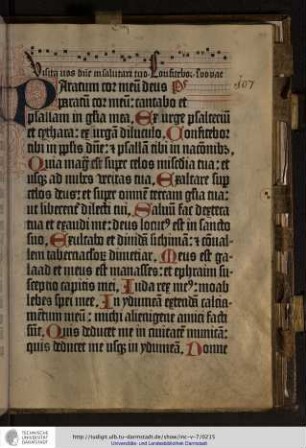 Visita nos dñe in salutari tuo. Confitebor. Euouae
Paratum cor meū deus Ps 107
paratū cor meū: cantabo et
psallam in glīa mea. Exurge psalteriū
et cythara: exurgā diluculo. Confitebor
tibi in pplīs dñe: ⁊ psallā tibi in nacōnibꝫ.
Quia magꝰ est supe celos misedīa tua: et
usqꝫ ad nubes veritas tua. Exaltare sup
celos deus: et supe omnē terram glīa tua:
ut liberent̄ dilecti tui. Saluū fac dextera
tua et exaudi me: deus locutꝰ est in sancto
suo. Exultabo et diuidā sichimā: ⁊ conual-
lem tabernaclōꝝ dimetiar. Meus est ga-
laad et meus est manasses: et ephraim su-
sceptio capitis mei. Iuda rex meꝰ: moab
lebes spei mee. In ydumeā extendā calcia-
mentum meū: michi alienigene amici facti
sūt. Quis deducet me in ciuitatē munitā:
quis deducet me usqꝫ in ydumeā. Nonne
TECHNISCHE
UNIVERSITÄT
DARMSTADT
http://tudigit.ulb.tu-darmstadt.de/show/inc-v-7/0215
Universitäts- und Landesbibliothek Darmstadt